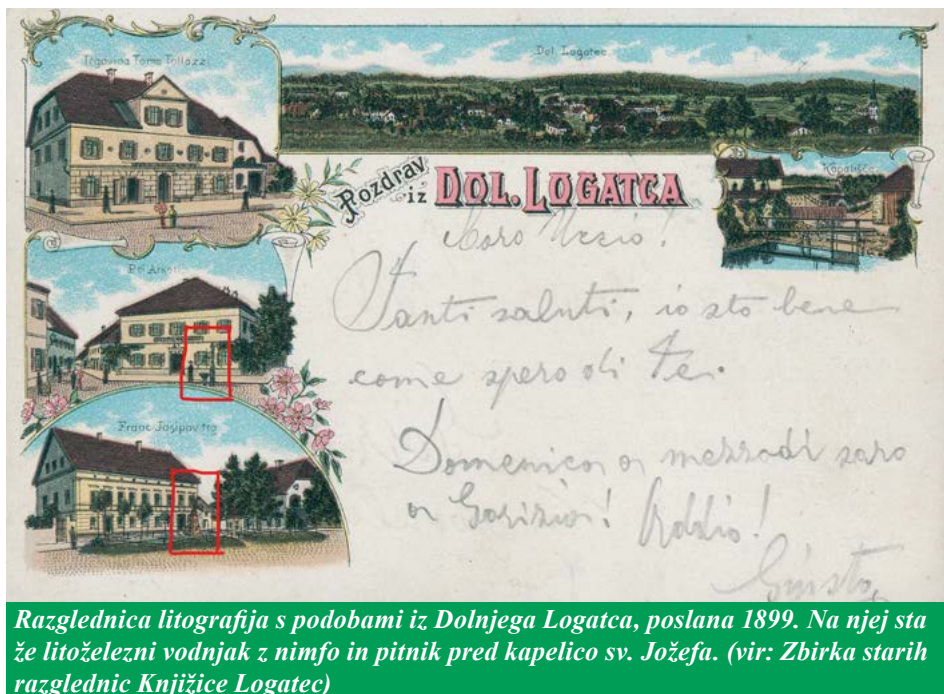 Trgovina Tomo Tollazzi
Dol. Logatec
Kopališče
Pozdrav
iz DOL. LOGATCA
Pri
Franc Josipov trg
Caro
Tanti saluti, io sto bene
come spero di te.
Domenica a mezzodì saro
a Gorizia! Addio!
Giusto
Razglednica litografija s podobami iz Dolnjega Logatca, poslana 1899. Na njej sta
že litoželezni vodnjak z nimfo in pitnik pred kapelico sv. Jožefa. (vir: Zbirka starih
razglednic Knjižice Logatec)